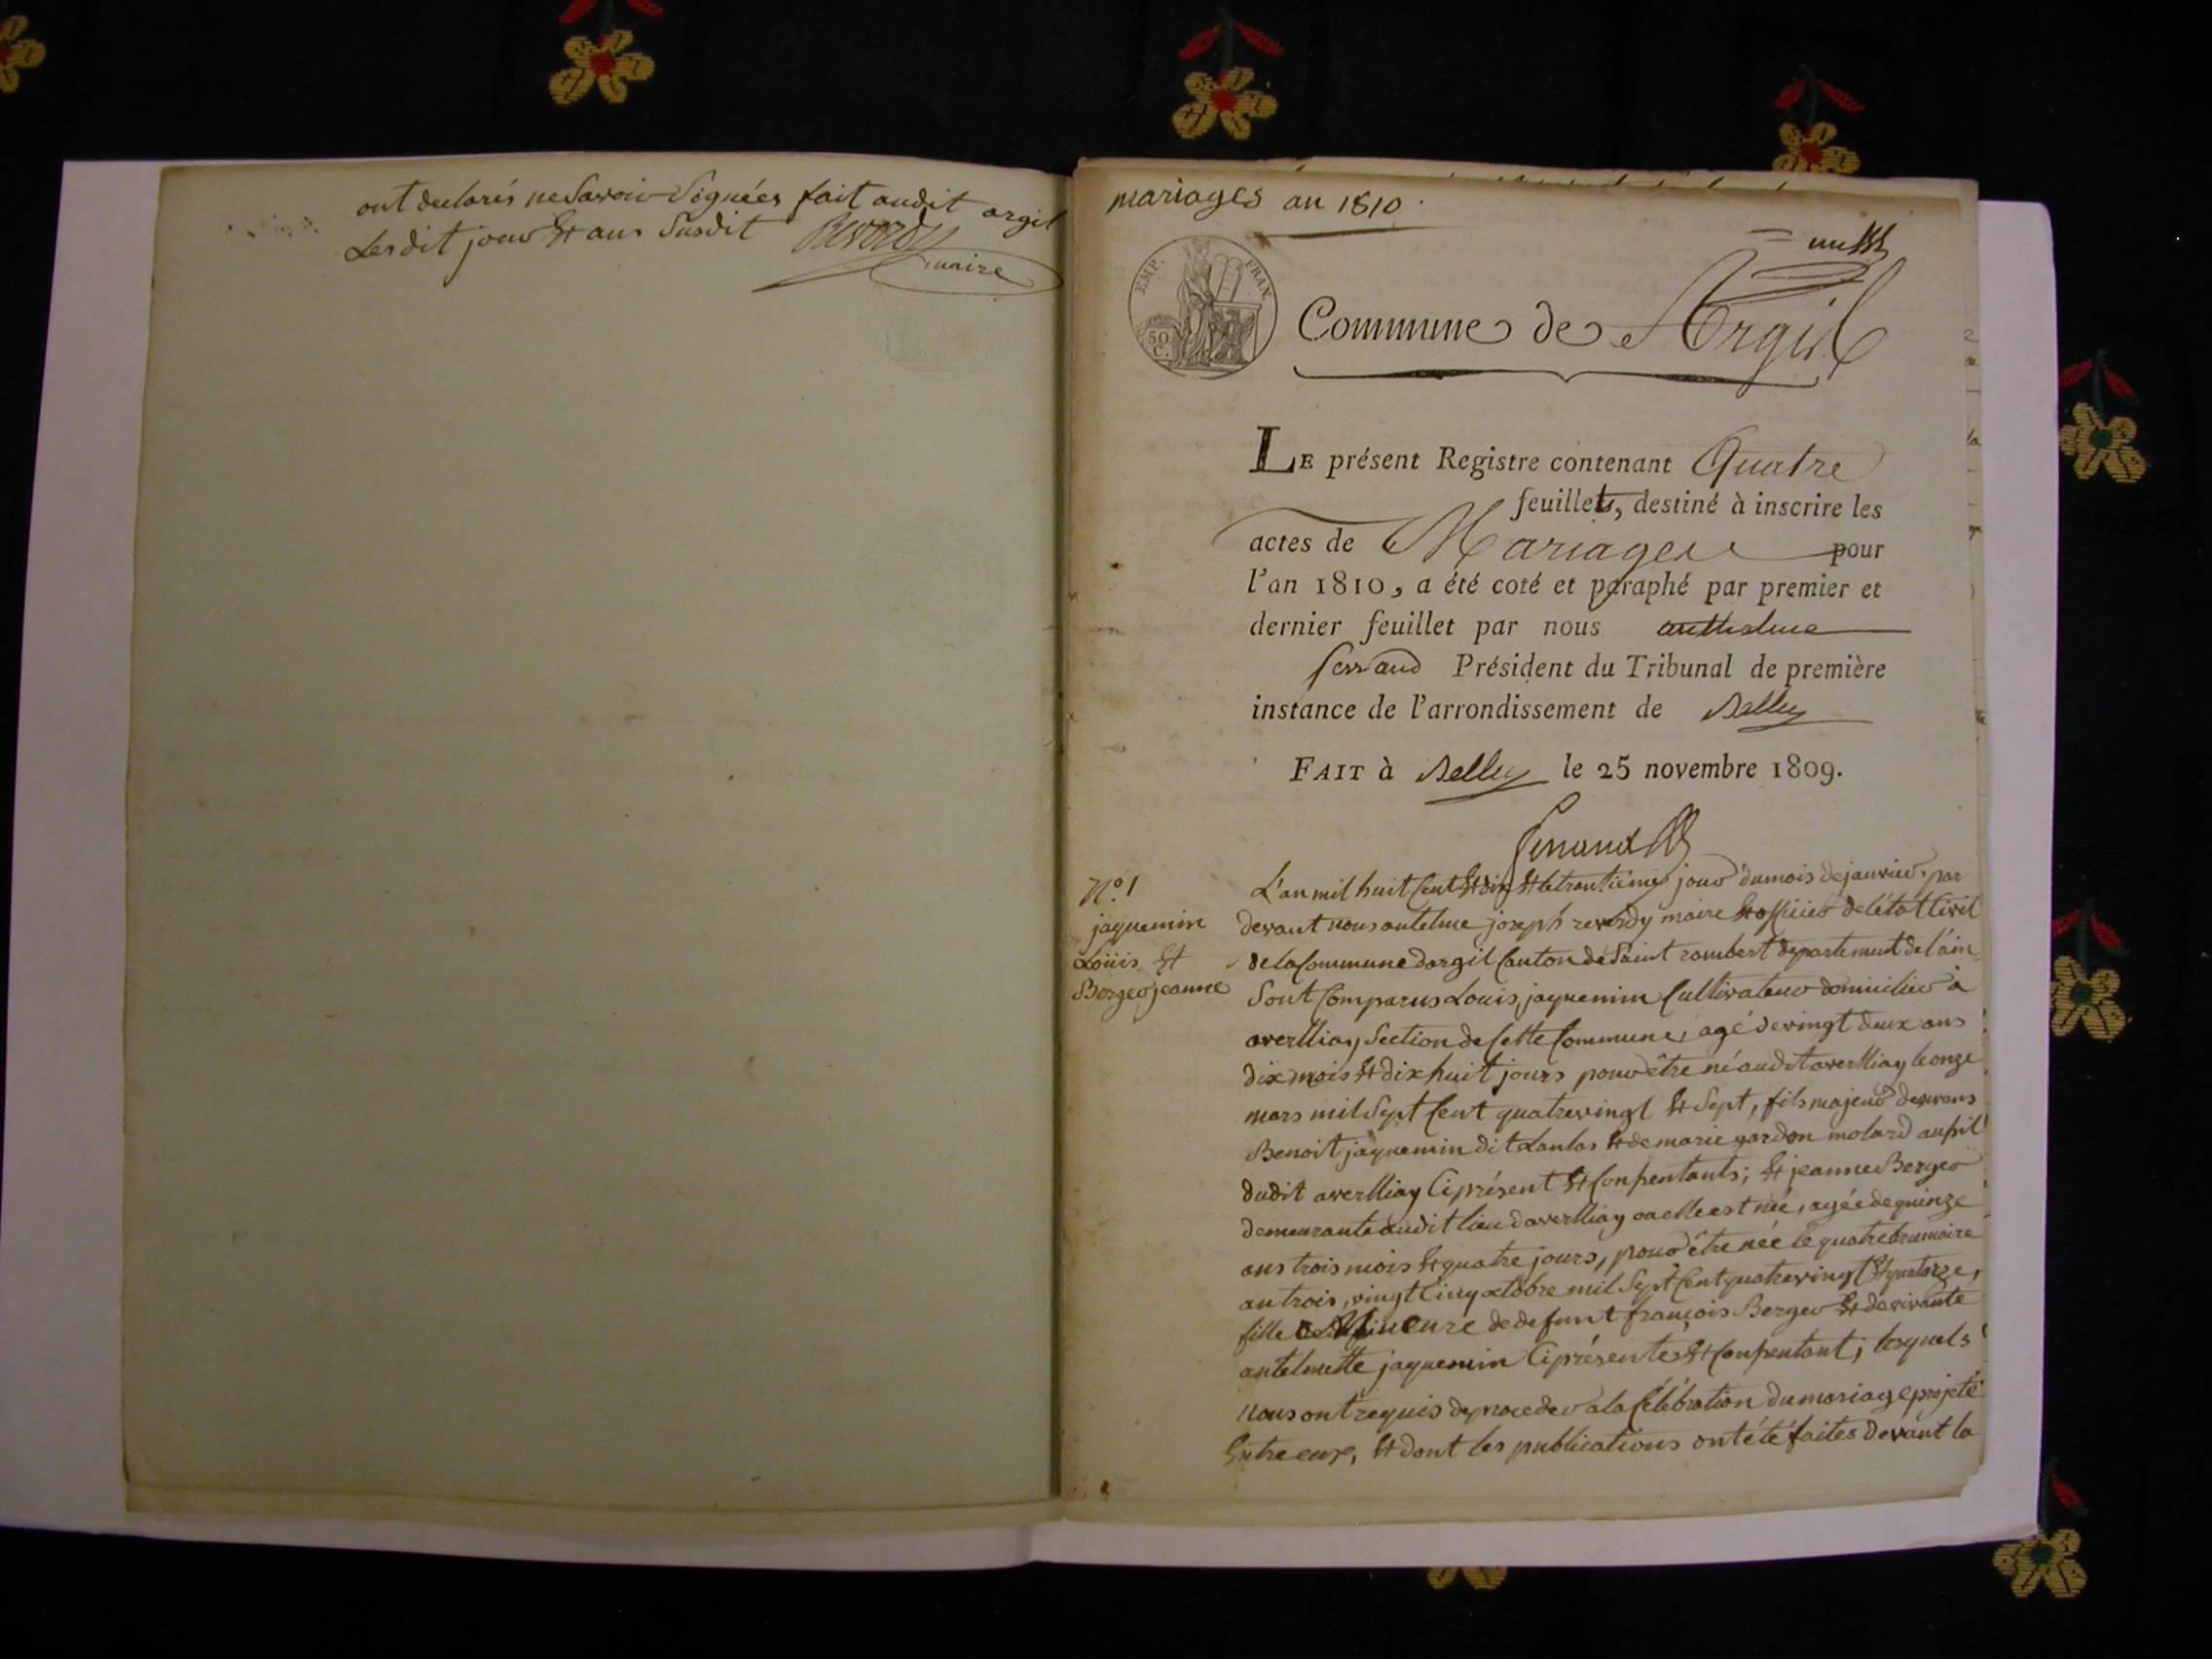 ont declarés ne Savoir Signées fait audit argil
Lesdit jour Et ans Susdit Reverdy
maire
mariages an 1810.
EMP. FRAN.
50 C.
Commune de Argil
LE présent Registre contenant Quatre
feuillets, destiné à inscrire les
actes de Mariages pour
l'an 1810, a été coté et paraphé par premier et
dernier feuillet par nous anthelme
ferrand Président du Tribunal de première
instance de l'arrondissement de Belley
FAIT à Belley le 25 novembre 1809.
Ferrand
N.o 1
jaquemin
Loüis Et
Berger jeanne
L'an mil huit Cent Et dix Et le trantiéme jour du mois de janvier. par
devant nous antelme joseph reverdy maire Et officier de l'état Civil
de la Commune dargil Canton de Saint rambert departement de l'ain
Sont Comparus Louis jaquemin Cultivateur domicilier à
averlliay Section de Cette Commune, agé de vingt deux ans
dix mois Et dix huit jours pour être né audit averlliay le onze
mars mil Sept Cent quatrevingt Et Sept, fils majeur de vivans
Benoit jaquemin dit Laulas Et de marie gardon molard
dudit averlliay Ciprésent Et Consentants; Et jeanne Berger
demeurante audit lieu daverlliay ou elle est née, agée de quinze
ans trois mois Et quatre jours, pour être née le quatre brumaire
an trois, vingt Cinq octobre mil Sept Cent quatrevingt Et quatorze,
fille Mineure de defunt françois Berger Et de vivante
antelmette jaquemin Ciprésentes Et Consentant; lesquels
nous ont requis de proceder a la Célébration du mariage projeté
Entre eux, Et dont les publications ont été faites devant la